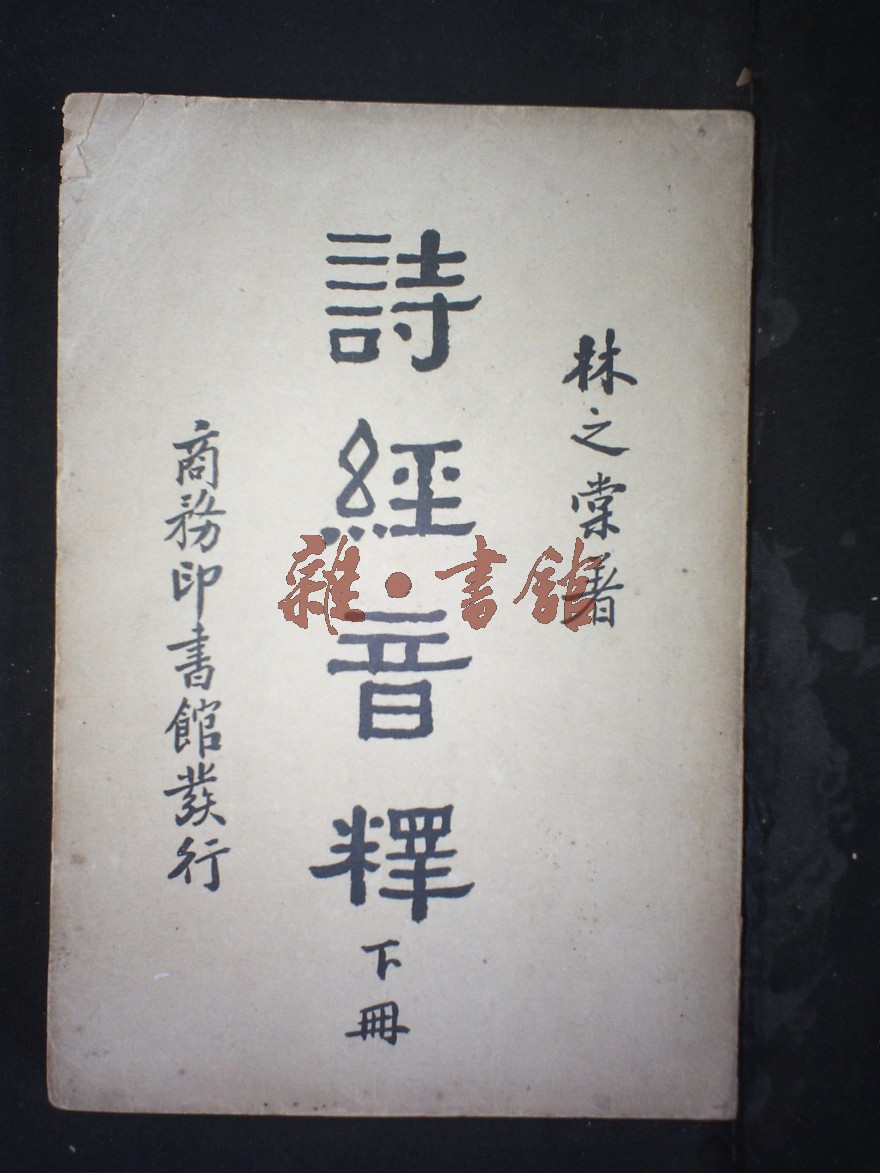 林之棠著
詩經音釋
下冊
商務印書館發行
雜·書館